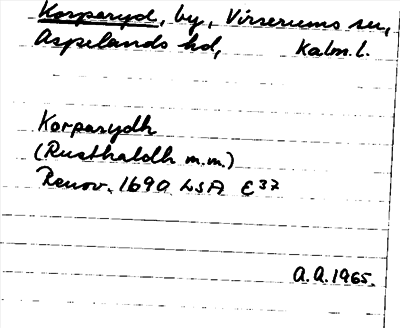 Korparyd, by, Virserums sn,
Aspelands hd, Kalm. l.
Korparydh
(Rusthaldh m.m.)
Renov. 1690 LSA E 37
A.A. 1965.